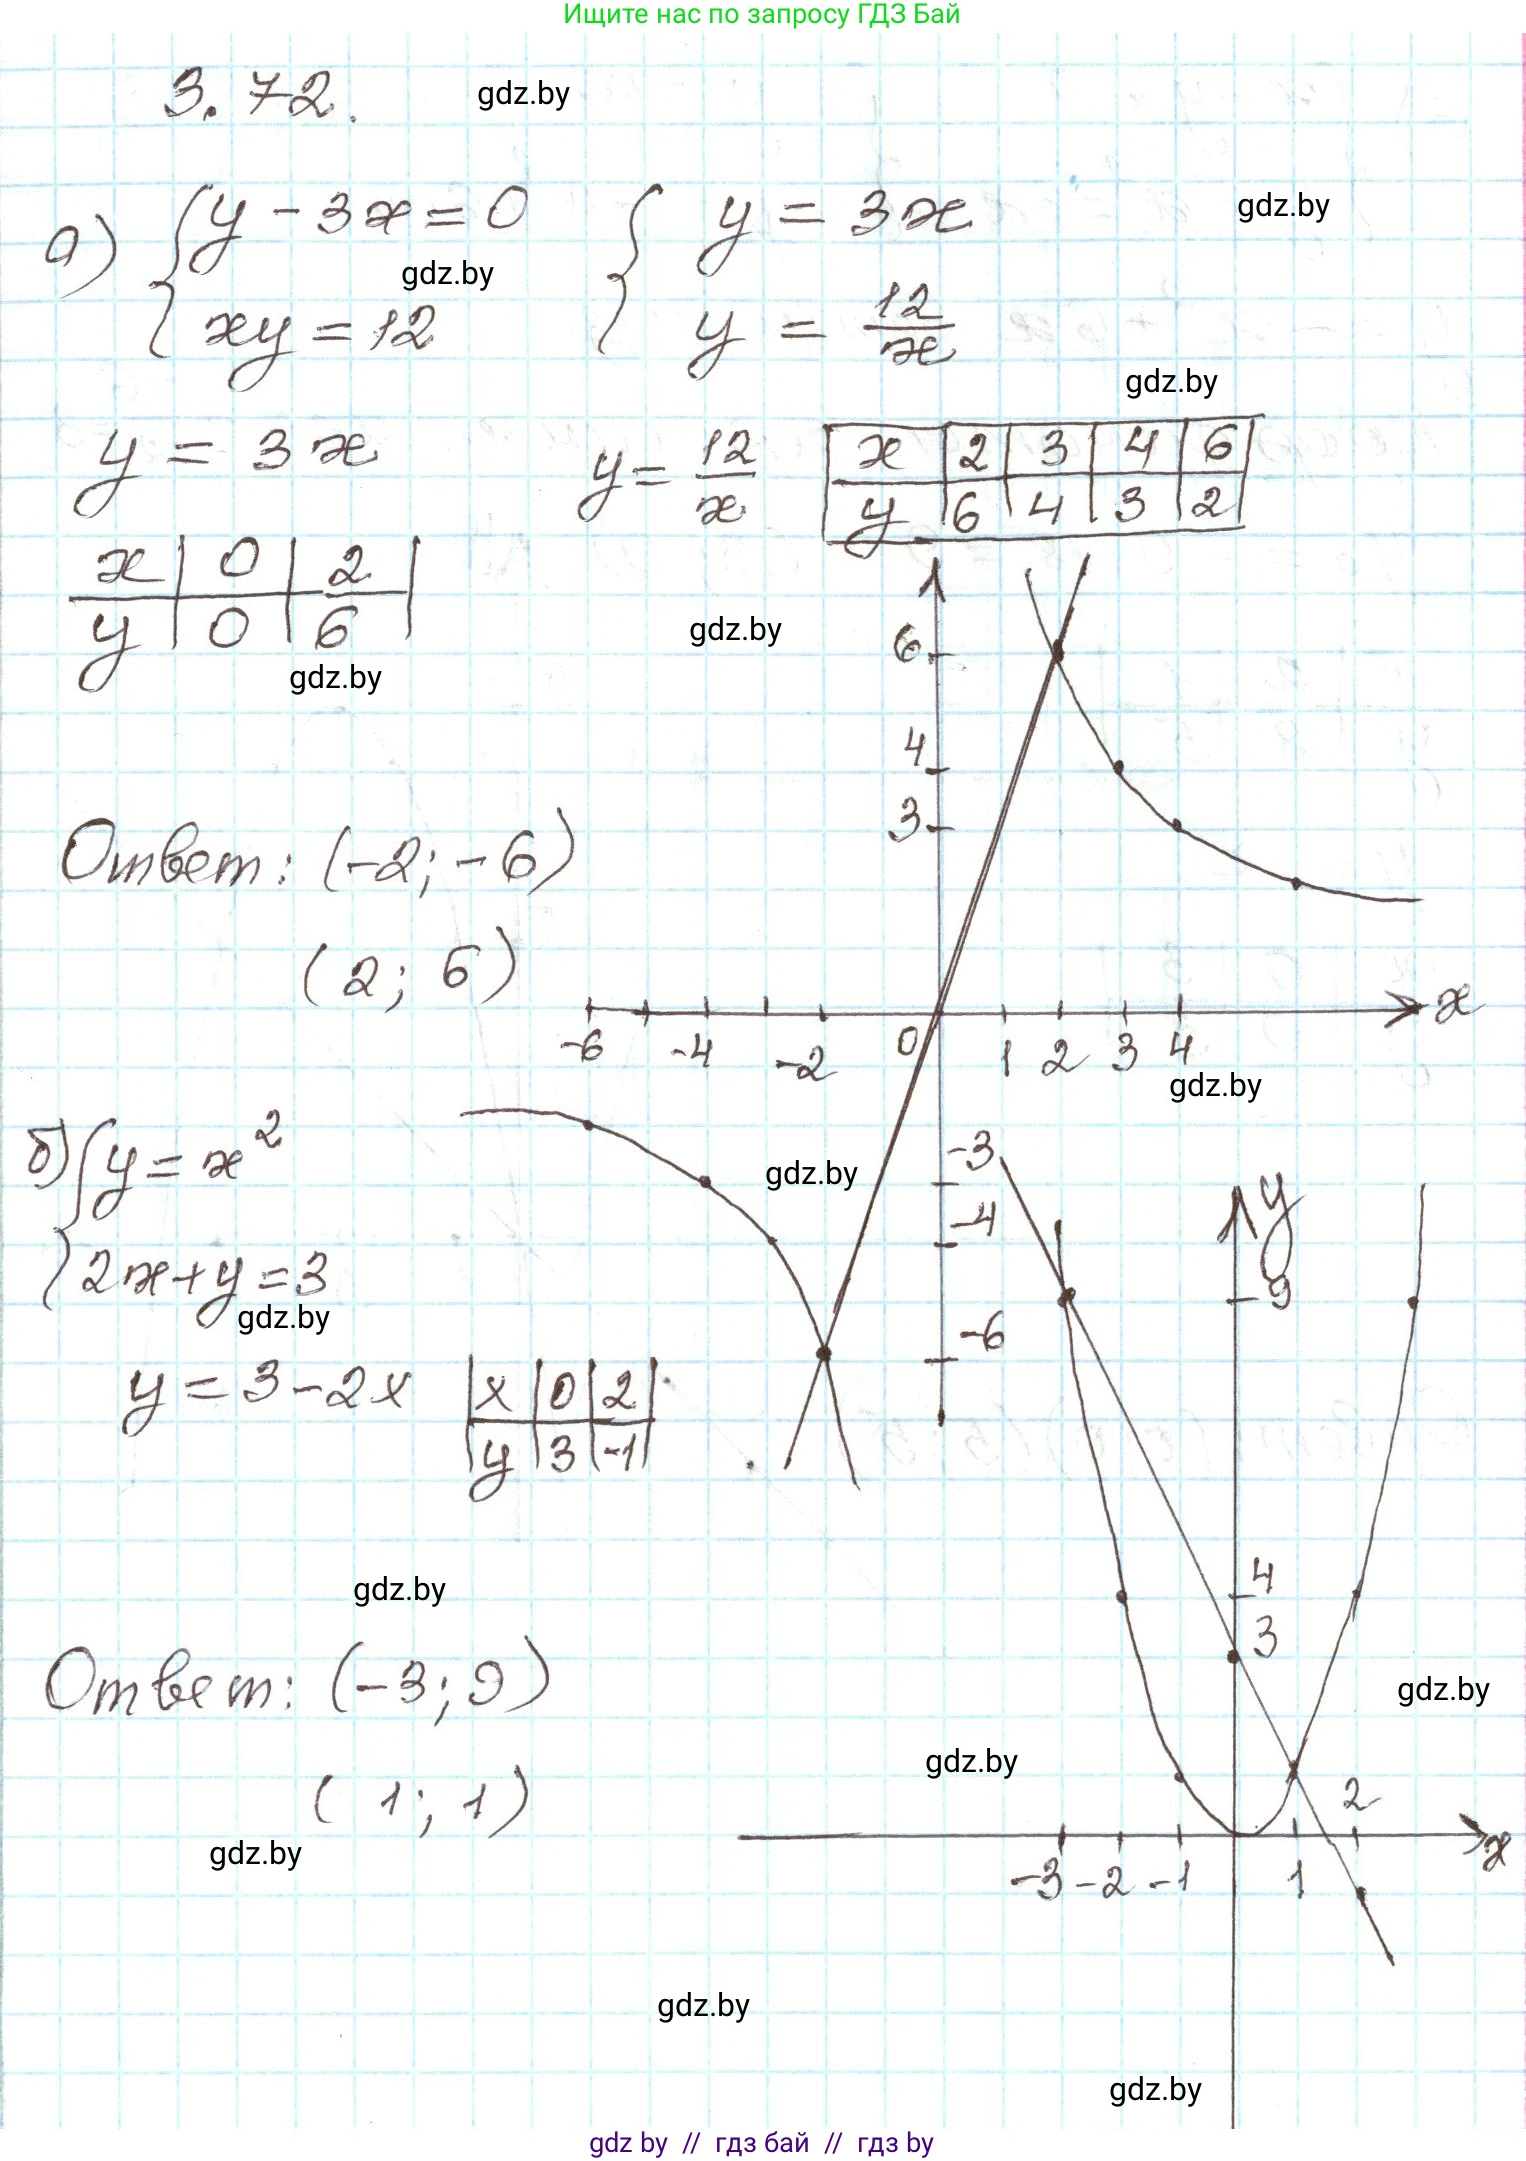 Ищите нас по запросу ГДЗ Бай
3.72.
gdz.by
а) { y - 3x = 0 { y = 3x
gdz.by
gdz.by
xy = 12 y = 12/x
gdz.by
y = 3x y = 12/x
x | 2 | 3 | 4 | 6
y | 6 | 4 | 3 | 2
x | 0 | 2
y | 0 | 6
gdz.by
gdz.by
6
4
3
Ответ: (-2; -6)
(2; 6)
x
-6 -4 -2 0 1 2 3 4
gdz.by
-3
-4
-6
б) { y = x²
gdz.by
2x+y=3
gdz.by
y = 3-2x
x | 0 | 2
y | 3 | -1
y
9
4
3
gdz.by
Ответ: (-3; 9)
gdz.by
gdz.by
(1; 1)
2
gdz.by
x
-3 -2 -1 1
gdz.by
gdz.by
gdz by // гдз бай // гдз by